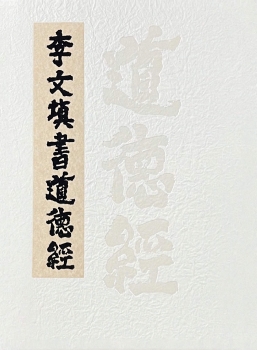 李文填書道德經
道德經